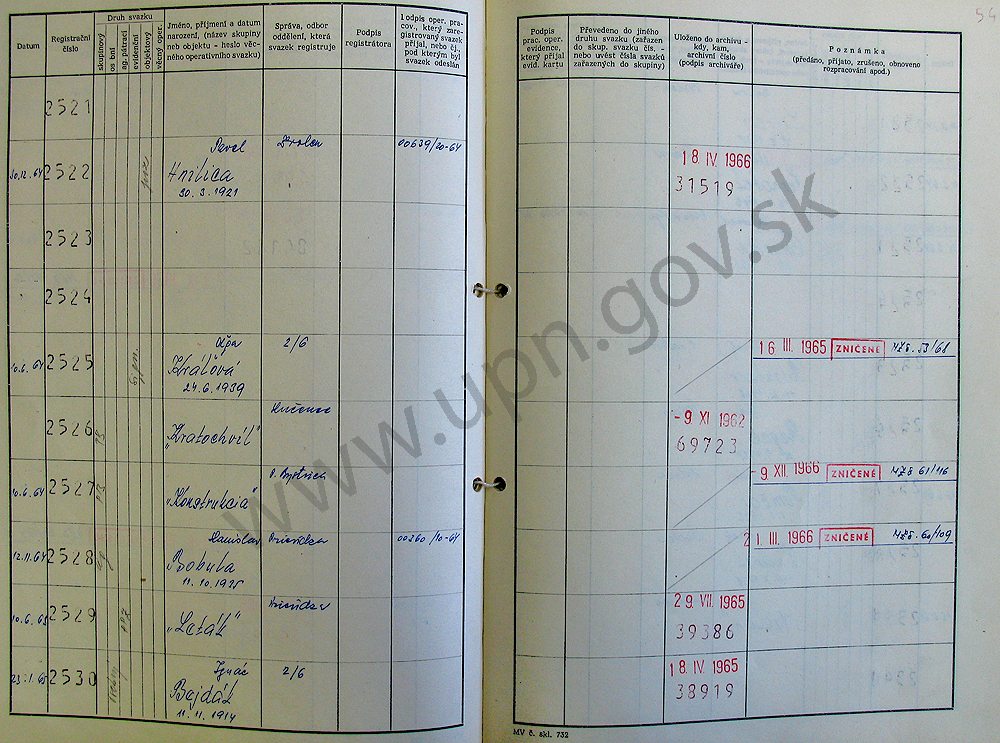 54
Datum
Registrační číslo
Druh svazku
skupinový
os bní
ag. pátrací
evidenční
objektový
věcný oper.
Jméno, příjmení a datum
narození, (název skupiny
neb objektu - heslo věc-
ného operativního svazku)
Správa, odbor
oddělení, která
svazek registruje
Podpis
registrátora
Podpis oper. pra-
cov., který zare-
gistrovaný svazek
přijal, nebo čj.,
pod kterým byl
svazek odeslán
Podpis
prac. oper.
evidence,
který přijal
evid. kartu
Převedeno do jiného
druhu svazku (zařazen
do skup. svazku čís. -
nebo uvést čísla svazků
zařazených do skupiny)
Uloženo do archivu -
kdy, kam,
archivní číslo
(podpis archiváře)
Poznámka
(předáno, přijato, zrušeno, obnoveno
rozpracování apod.)
2521
30.12.64 2522 Pavel Zvolen 00639/20-64
Hnilica
30. 3. 1921
18 IV. 1966
31519
2523
2524
10.6.64 2525 2/6
Kráľová
24.6.1939
16 III. 1965 ZNIČENÉ NZ8. 53/68
2526 Lučenec
"Kratochvíl"
- 9 XI 1962
69723
10.6.64 2527 B. Bystrica
"Konstrukcia"
- 9. XII. 1966 ZNIČENÉ NZ8 61/116
12.11.64 2528 Stanislav Prievidza 00260/10-64
Bobula
11.10.1925
21. III. 1966 ZNIČENÉ NZ8. 60/109
10.6.65 2529 Prievidza
"Leták"
29. VII. 1965
39386
23.1.65 2530 Ignác 2/6
Bajdák
11.11.1914
18. IV. 1965
38919
MV č. skl. 732
www.upn.gov.sk